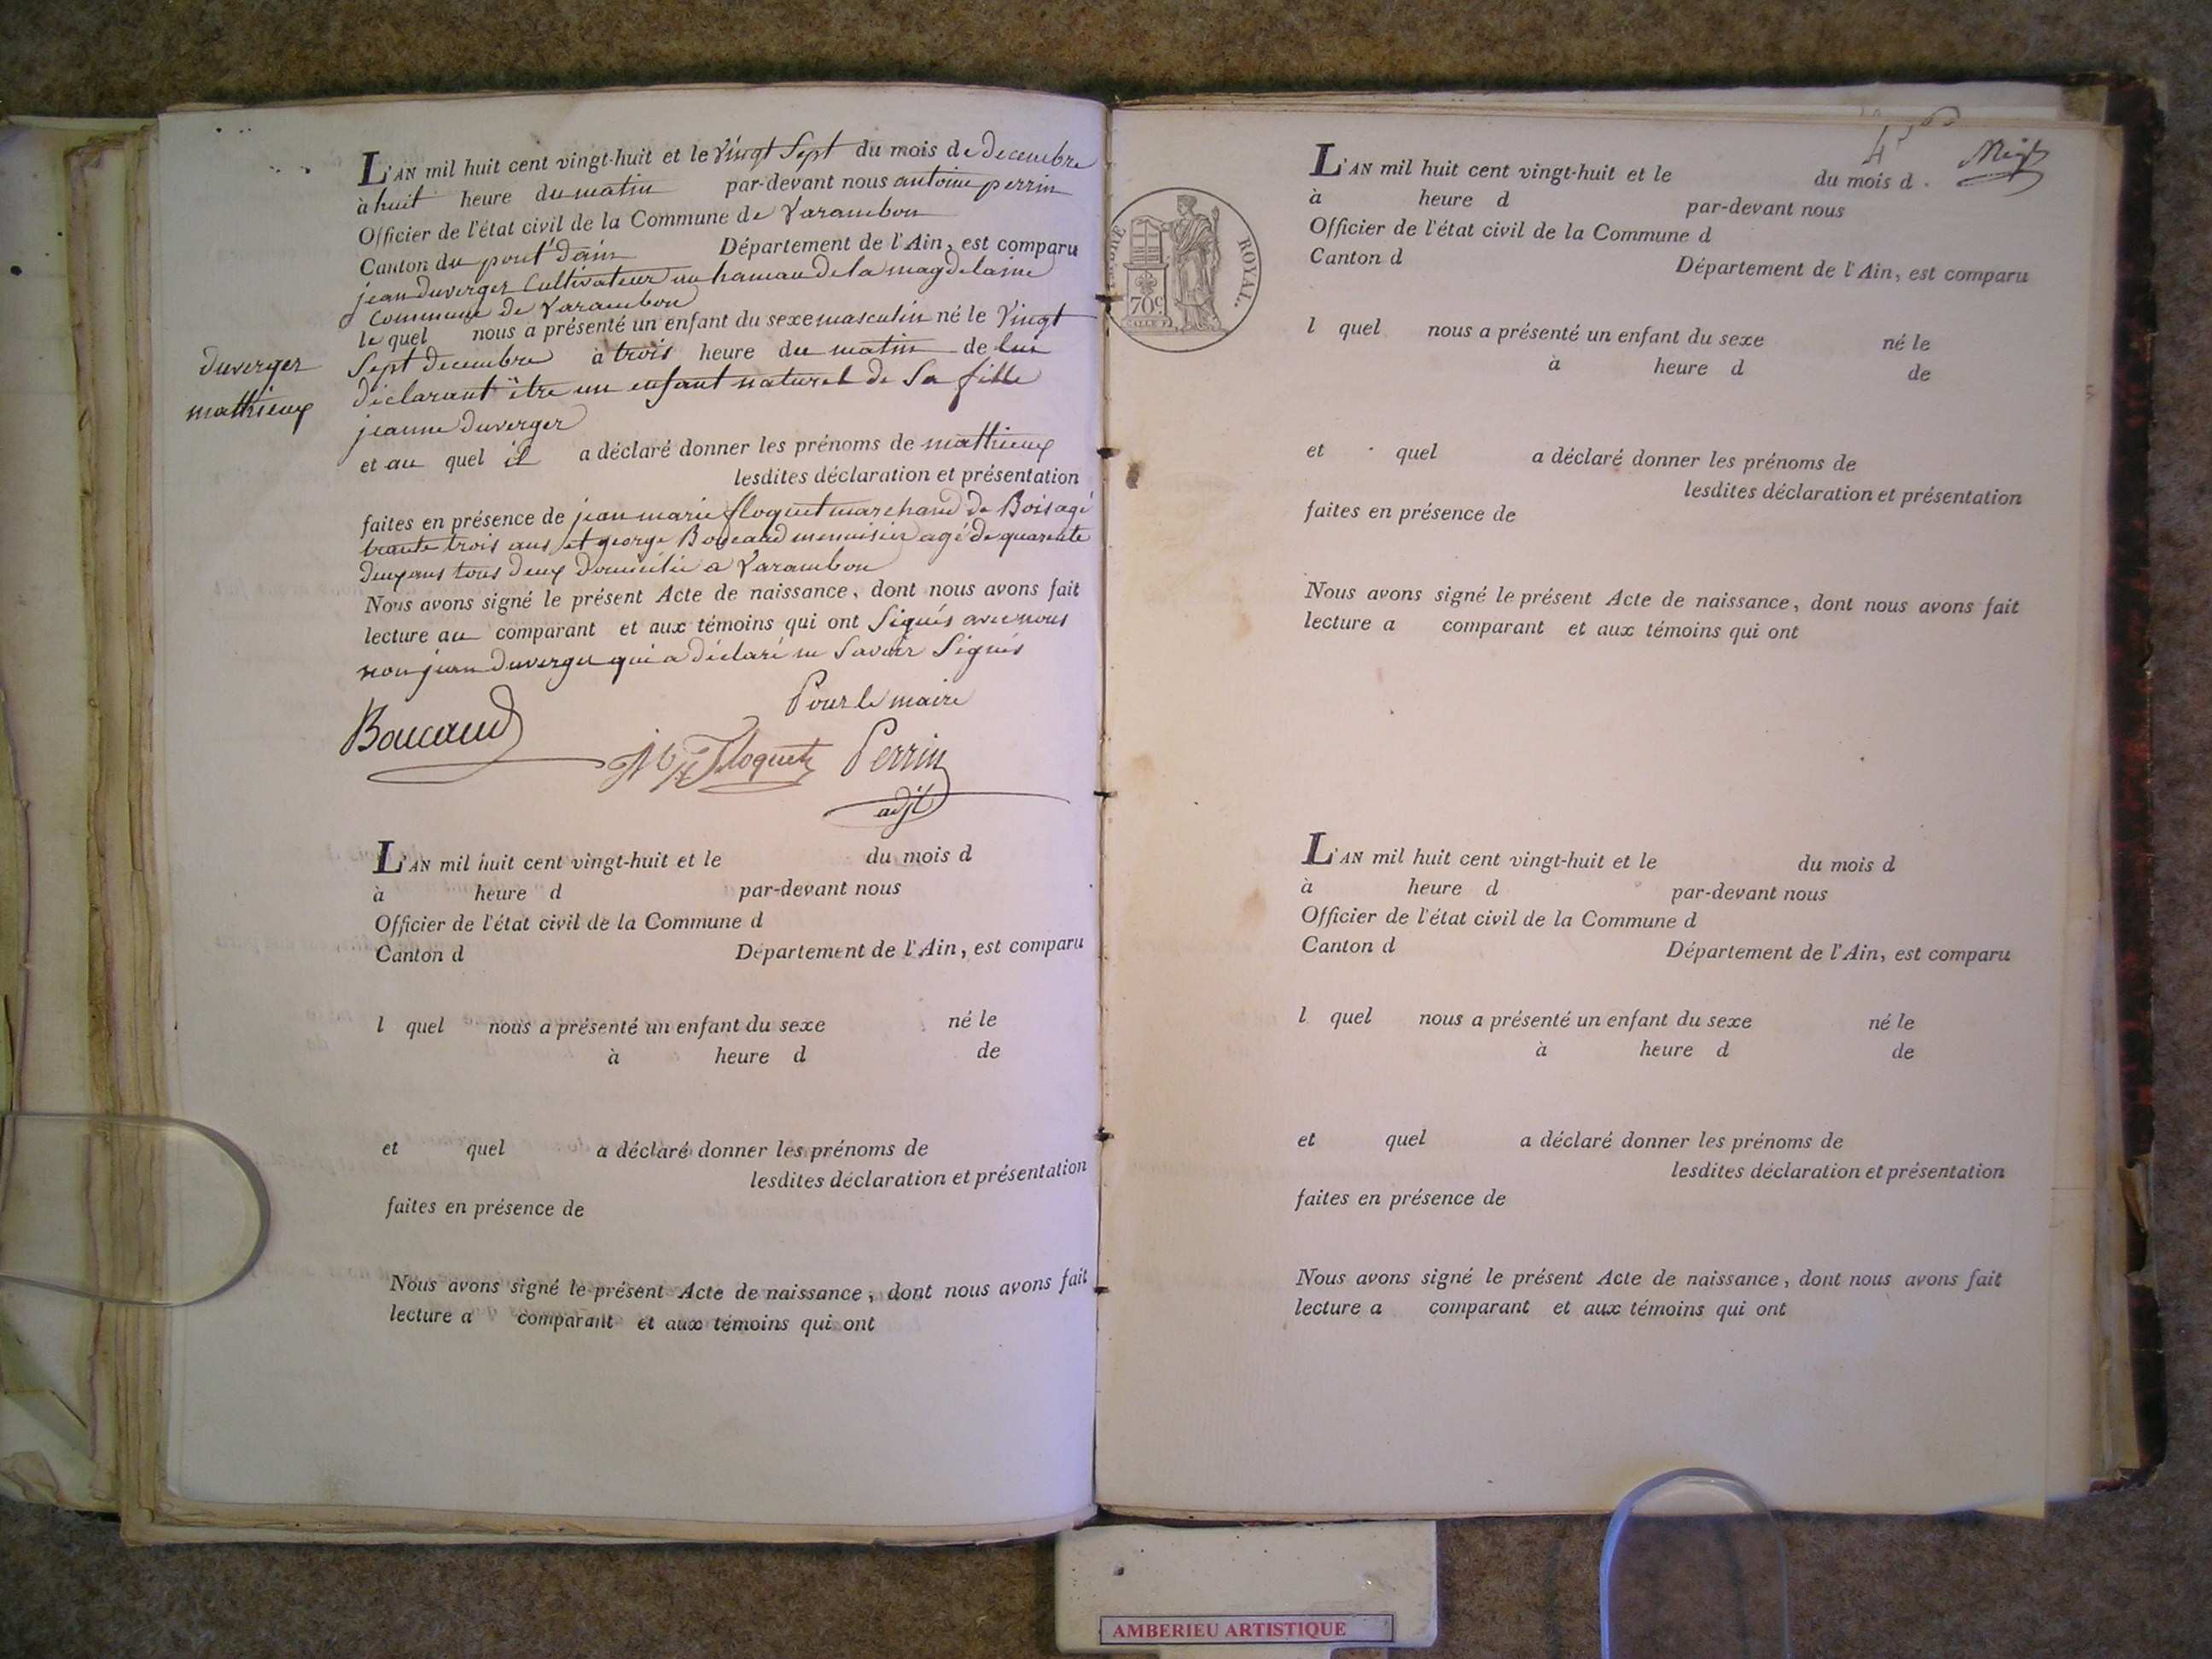 L'AN mil huit cent vingt-huit et le vingt sept du mois de decembre
à huit heure du matin par-devant nous antoine perrin
Officier de l'état civil de la Commune de Varambon
Canton du pont d'ain Département de l'Ain, est comparu
jean duverger Cultivateur au hamau de la magdelaine
Commune de Varambon
le quel nous a présenté un enfant du sexe masculin né le vingt
Sept decembre à trois heure du matin de lui
déclarant être un enfant naturel de Sa fille
jeanne duverger
et au quel il a déclaré donner les prénoms de mathieux
lesdites déclaration et présentation
faites en présence de jean marie floquet marchand de Bois agé
trante trois ans et george Boucaud menuisier agé de quarente
deux ans tous deux domicilié a Varambon
Nous avons signé le présent Acte de naissance, dont nous avons fait
lecture au comparant et aux témoins qui ont Signés avec nous
non jean duverger qui a déclaré ne Savoir Signés
duverger
mathieux
Pour le maire
Boucaud
Floquet Perrin
adjt
L'AN mil huit cent vingt-huit et le du mois d
à heure d par-devant nous
Officier de l'état civil de la Commune d
Canton d Département de l'Ain, est comparu
l quel nous a présenté un enfant du sexe né le
à heure d de
et quel a déclaré donner les prénoms de
lesdites déclaration et présentation
faites en présence de
Nous avons signé le présent Acte de naissance, dont nous avons fait
lecture a comparant et aux témoins qui ont
ROYAL.
70c.
L'AN mil huit cent vingt-huit et le du mois d
à heure d par-devant nous
Officier de l'état civil de la Commune d
Canton d Département de l'Ain, est comparu
l quel nous a présenté un enfant du sexe né le
à heure d de
et quel a déclaré donner les prénoms de
lesdites déclaration et présentation
faites en présence de
Nous avons signé le présent Acte de naissance, dont nous avons fait
lecture a comparant et aux témoins qui ont
L'AN mil huit cent vingt-huit et le du mois d
à heure d par-devant nous
Officier de l'état civil de la Commune d
Canton d Département de l'Ain, est comparu
l quel nous a présenté un enfant du sexe né le
à heure d de
et quel a déclaré donner les prénoms de
lesdites déclaration et présentation
faites en présence de
Nous avons signé le présent Acte de naissance, dont nous avons fait
lecture a comparant et aux témoins qui ont
AMBERIEU ARTISTIQUE